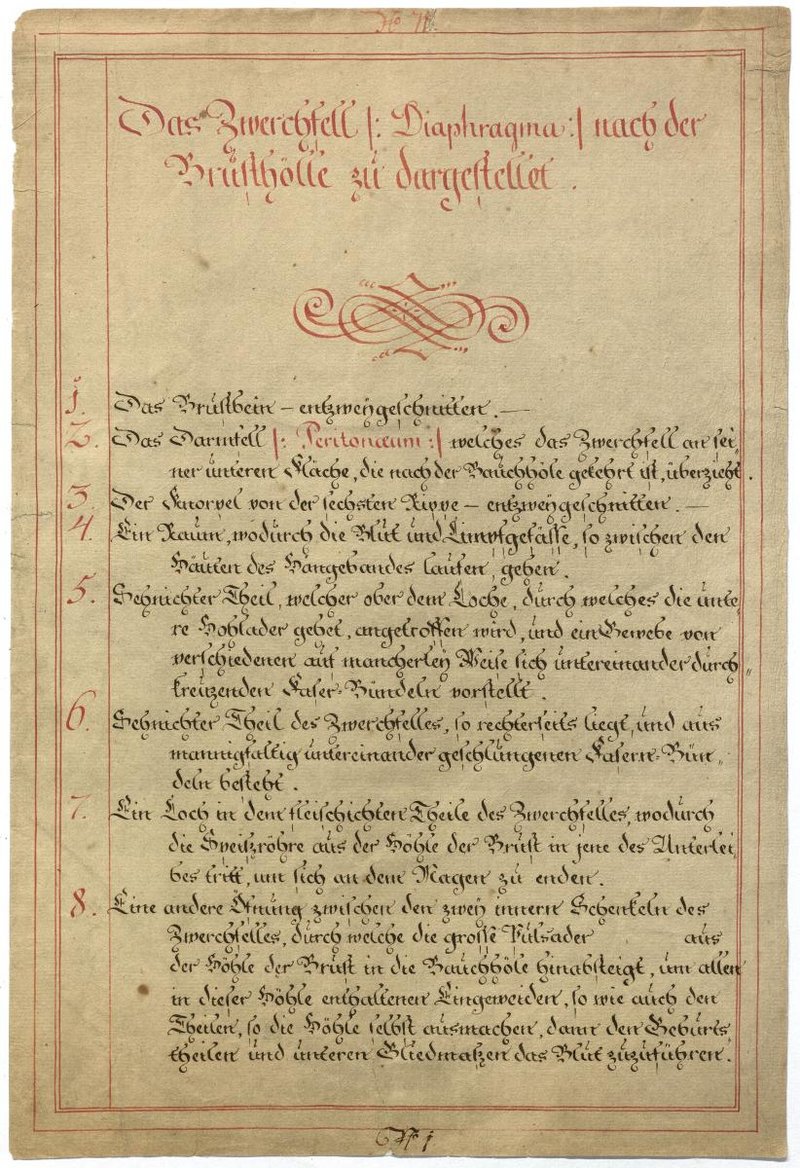 Das Zwerchfell |: Diaphragma :| nach der
Brusthölle zu dargestellet .
1. Das Brustbein – entzweygeschnitten. —
2. Das Darmfell |: Peritonæum :| welches das Zwerchfell an sei-
ner unteren Fläche, die nach der Bauchhöle gekehrt ist, überzieht .
3. Der Knorpel von der sechsten Rippe – entzweygeschnitten. —
4. Ein Raum, wodurch die Blut und Limpfgefässe, so zwischen den
Häuten des Hangebandes laufen, gehen .
5. Sehnichter Theil, welcher ober dem Loche, durch welches die unte-
re Hohlader gehet, angetroffen wird, und ein Gewebe von
verschiedenen auf mancherley Weise sich untereinander durch„
kreuzenden Faser-Bündeln vorstellt .
6. Sehnichter Theil des Zwerchfelles, so rechterseits liegt, und aus
mannigfaltig untereinander geschlungenen Fasern-Bün„
deln besteht .
7. Ein Loch in dem fleischichten Theile des Zwerchfelles, wodurch
die Speißröhre aus der Höhle der Brust in jene des Unterlei„
bes tritt, um sich an dem Magen zu enden.
8. Eine andere Öfnung zwischen den zwey innern Schenkeln des
Zwerchfelles, durch welche die grosse Pulsader aus
der Höhle der Brust in die Bauchhöle hinabsteigt, um allen
in dieser Höhle enthaltenen Eingeweiden, so wie auch den
Theilen, so die Höhle selbst ausmachen, dann den Geburts„
theilen und unteren Gliedmaßen das Blut zuzuführen.